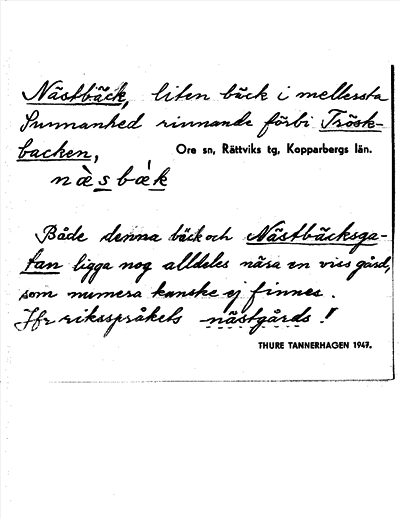 Nästbäck, liten bäck i mellersta
Sunnanhed rinnande förbi Trösk-
backen,
Ore sn, Rättviks tg, Kopparbergs län.
næ̀sbæ̀k
Både denna bäck och Nästbäcksga-
tan ligga nog alldeles nära en viss gård,
som numera kanske ej finnes.
Jfr riksspråkets nästgårds!
THURE TANNERHAGEN 1947.